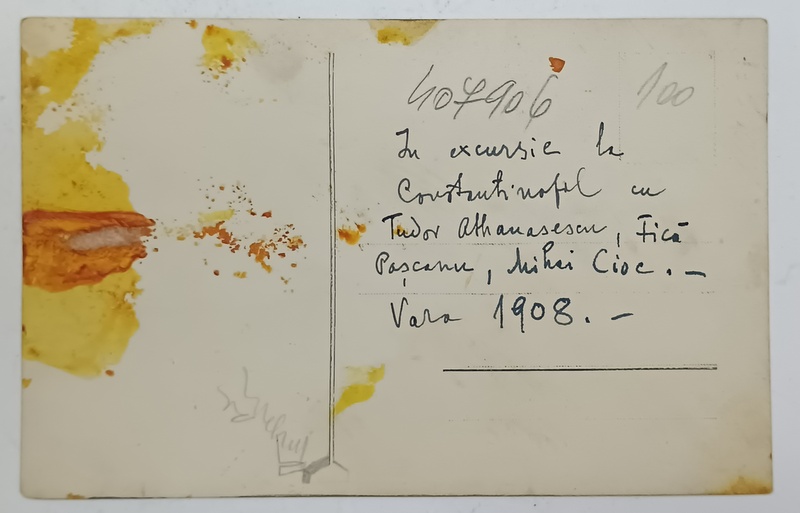 407906
100
In excursie la
Constantinopol cu
Tudor Athanasescu, Fică
Pașcanu, Mihai Cioc. —
Vara 1908. —